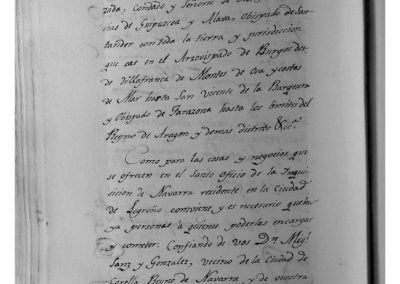 zada, Condado y Señorio de
cias de Guipuzcoa y Alava, Obispado de San-
tander con toda la tierra y jurisdiccion
que cae en el Arzobispado de Burgos des-
de Villafranca de Montes de Oca y costas
de Mar hasta San Vicente de la Barquera
y Obispado de Tarazona hasta los limites del
Reyno de Aragon y demas distrito &c.ª
Como para las cosas y negocios que
se ofrecen en el Santo Oficio de la Inqui-
sicion de Navarra residente en la Ciudad
de Logroño conviene, y es necesario que ha-
ya personas á quienes poderlas encargar
y cometer: Confiando de vos Dn. Migl.
Sanz y Gonzalez, vecino de la Ciudad de
Corella Reyno de Navarra, y de vuestra